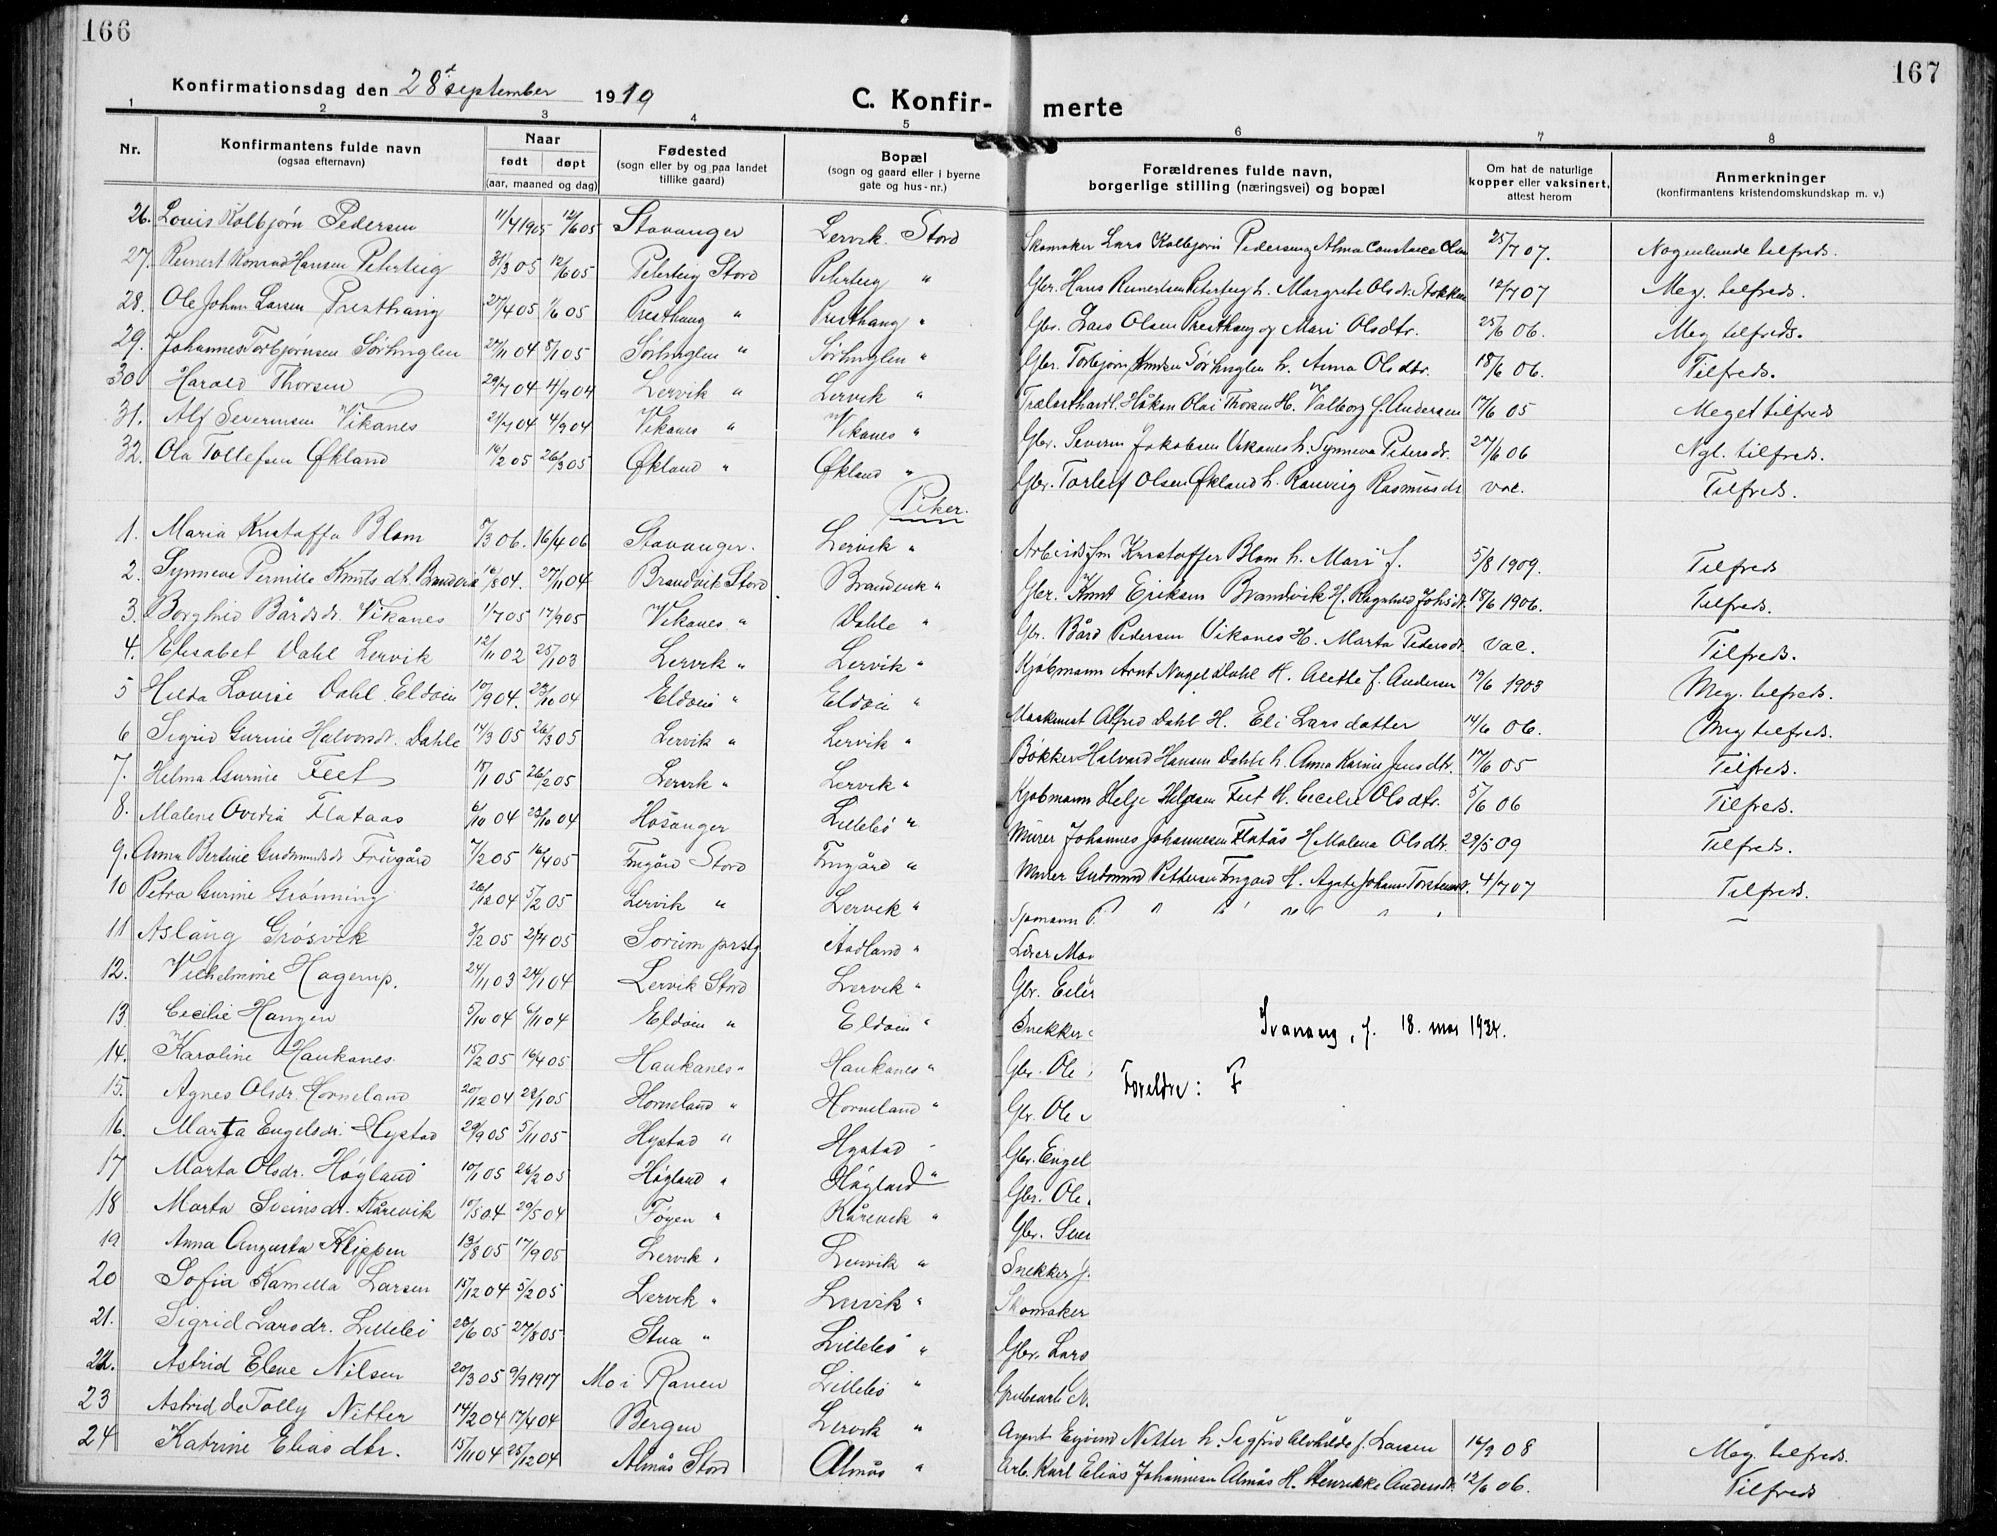 166
167
Konfirmationsdag den 28de september 1919
C. Konfir- merte
1 2 3 4 5 6 7 8
Nr. Konfirmantens fulde navn (ogsaa efternavn) Naar født døpt (aar, maaned og dag) Fødested (sogn eller by og paa landet tillike gaard) Bopæl (sogn og gaard eller i byerne gate og hus-nr.) Forældrenes fulde navn, borgerlige stilling (næringsvei) og bopæl Om hat de naturlige kopper eller vaksinert, attest herom Anmerkninger (konfirmantens kristendomskundskap m. v.)
26. Louis Kolbjørn Pedersen 11/4 1905 12/6 05 Stavanger Lervik Stord Skomaker Lars Kolbjørn Pedersen og Alma Constance Olsen 25/7 07. Nogenlunde tilfreds.
27. Reinert Konrad Hansen Peterteig 31/3 05 12/6 05 Peterteig Stord Peterteig " Gbr. Hans Reinertsen Peterteig h. Margrete Olsdtr. Stokken 12/7 07 Meg. tilfreds.
28. Ole Johan Larsen Presthaug 27/4 05 1/6 05 Presthaug " Presthaug " Gbr. Lars Olsen Presthaug og Mari Olsdtr. 25/6 06. Meg tilfreds.
29. Johannes Torbjørnsen Sørhuglen 27/11 04 8/1 05 Sørhuglen " Sørhuglen " Gbr. Torbjørn Knudsen Sørhuglen h. Anna Olsdtr. 18/6 06. Tilfreds.
30 Harald Thorsen 29/7 04 4/9 04 Lervik " Lervik " Trælasthandl. Håkon Olai Thorsen H. Valborg f. Andersen 17/6 05 Meget tilfreds
31. Alf Severinsen Vikanes 21/7 04 4/9 04 Vikanes " Vikanes " Gbr. Severin Jakobsen Vikanes h. Synneva Petersdr. 27/6 06 Ngl. tilfreds.
32. Ola Tollefsen Økland 16/2 05 26/3 05 Økland " Økland " Gbr. Torleif Olsen Økland h. Ranveig Rasmusdr vac. Tilfreds.
Piker.
1. Maria Kristoffa Blom /3 06. 16/4 06 Stavanger. Lervik " Arbeidsfm Kristoffer Blom h. Mari f. 5/8 1909. Tilfreds
2. Synneve Pernille Knuts dt. Brandvik 16/8 04. 27/11 04 Brandvik Stord Brandvik " Gbr. Knut Eriksen Brandvik H. Ragnhild Johsdr. 18/6 1906. Tilfreds.
3. Borghild Bårdsdr. Vikanes 1/7 05 17/9 05 Vikanes " Dahle " Gbr. Bård Pedersen Vikanes H. Marta Petersdr. vac. Tilfreds.
4. Elisabet Dahl Lervik 12/11 02 25/1 03 Lervik " Lervik " Kjøbmann Arnt Nagel Dahl H. Alethe f. Andersen 19/6 1903 Meg. tilfreds.
5 Hilda Lovise Dahl Eldøen 10/9 04. 23/10 04 Eldøen " Eldøen " Maskinist Alfred Dahl H. Eli Larsdatter 14/6 06. Meg tilfreds.
6 Sigrid Gurine Halvorsdr. Dahle 14/3 05 26/3 05 Lervik " Lervik " Bøkker Halvard Hansen Dahle h. Anna Karine Jensdtr. 17/6 05 Tilfreds.
7. Helma Gurine Feet 15/1 05 26/2 05 Lervik " Lervik " Kjøbmann Helje Heljesen Feet H. Cecelie Olsdtr. 5/6 06 Tilfreds.
8. Malene Ovedia Flataas 6/10 04 23/10 04 Hosanger Lillebø " Murer Johannes Johannesen Flatås H Malena Olsdtr. 29/5 09 Tilfreds.
9. Anna Bertine Gudmundsdr Frugård 7/2 05 16/4 05 Frugård Stord Frugård " Murer Gudmund Pettersen Frugård H. Agate Johanne Torstensdr. 4/7 07 Tilfreds.
10 Petra Gurine Grønning 26/12 04 5/2 05 Lervik " Lervik " Sjømann P.
11 Aslaug Grøsvik 3/2 05 24/4 05 Sørum prstg Aadland " Lærer Mo
12. Vilhelmine Hagerup. 24/11 03 24/1 04 Lervik Stord Lervik " Gbr. Eiler
13 Cecilie Haugen 5/10 04 6/11 04 Eldøen " Eldøen " Snekker
14. Karoline Haukanes 15/2 05 16/4 05 Haukanes " Haukanes " Gbr. Ole
15. Agnes Olsdr. Horneland 20/12 04 22/1 05 Horneland " Horneland " Gbr. Ole
16. Marta Engelsdr. Hystad 29/9 05 5/11 05 Hystad " Hystad " Gbr. Engel
17 Marta Olsdr. Høgland 10/1 05 26/2 05 Høgland " Høgland " Gbr. Ole
18 Marta Sveinsdr. Kårevik 10/5 04 29/5 04 Føyen " Kårevik " Gbr. Svei
19 Anna Augusta Kleppen 13/8 05 17/9 05 Lervik " Lervik " Snekker J.
20 Sofia Kamella Larsen 15/12 04 5/2 05 Lervik " Lervik " Skomaker
21. Sigrid Larsdr. Lillebø 28/6 05 27/8 05 Stua " Lillebø " Gbr. Lars
22. Astrid Elene Nilsen 20/3 05 9/9 1917 Mo i Ranen Lillebø " Grubearb. N.
23 Astrid de Tolly Nitter 14/2 04 17/4 04 Bergen Lervik " Agent Eyvind Nitter h. Sigfrid Alvhilde f. Larsen 16/9 08 Meg. tilfreds.
24 Katrine Elias dtr. 15/11 04 25/12 04 Almås Stord Almås " Arb. Karl Elias Johannesen Almås H. Henrikke Andersdr. 12/6 06. Tilfreds
Svanaug, f. 18. mai 1934.
Foreldre: F